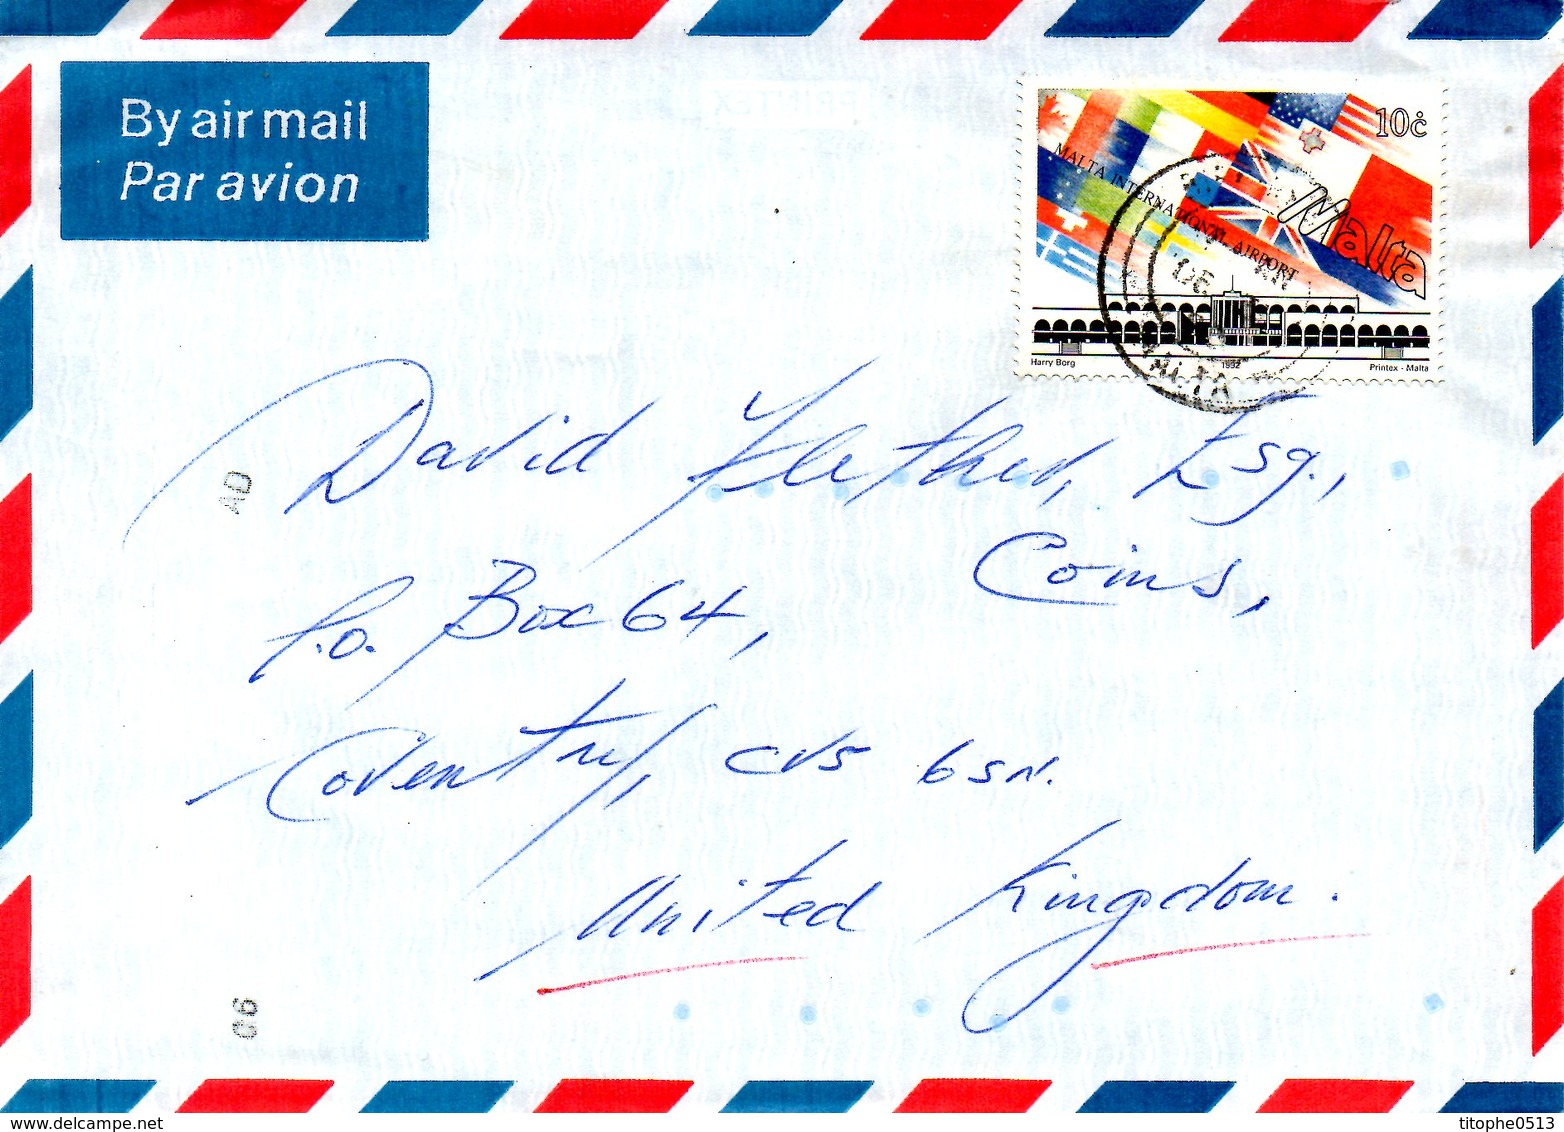 By air mail
Par avion
10ċ
MALTA INTERNATIONAL AIRPORT
Malta
Harry Borg
1992
Printex - Malta
MALTA
AD
David Fletcher, Esq.,
Coins,
P.O. Box 64,
Coventry, CV5 6SN.
United Kingdom.
titophe0513